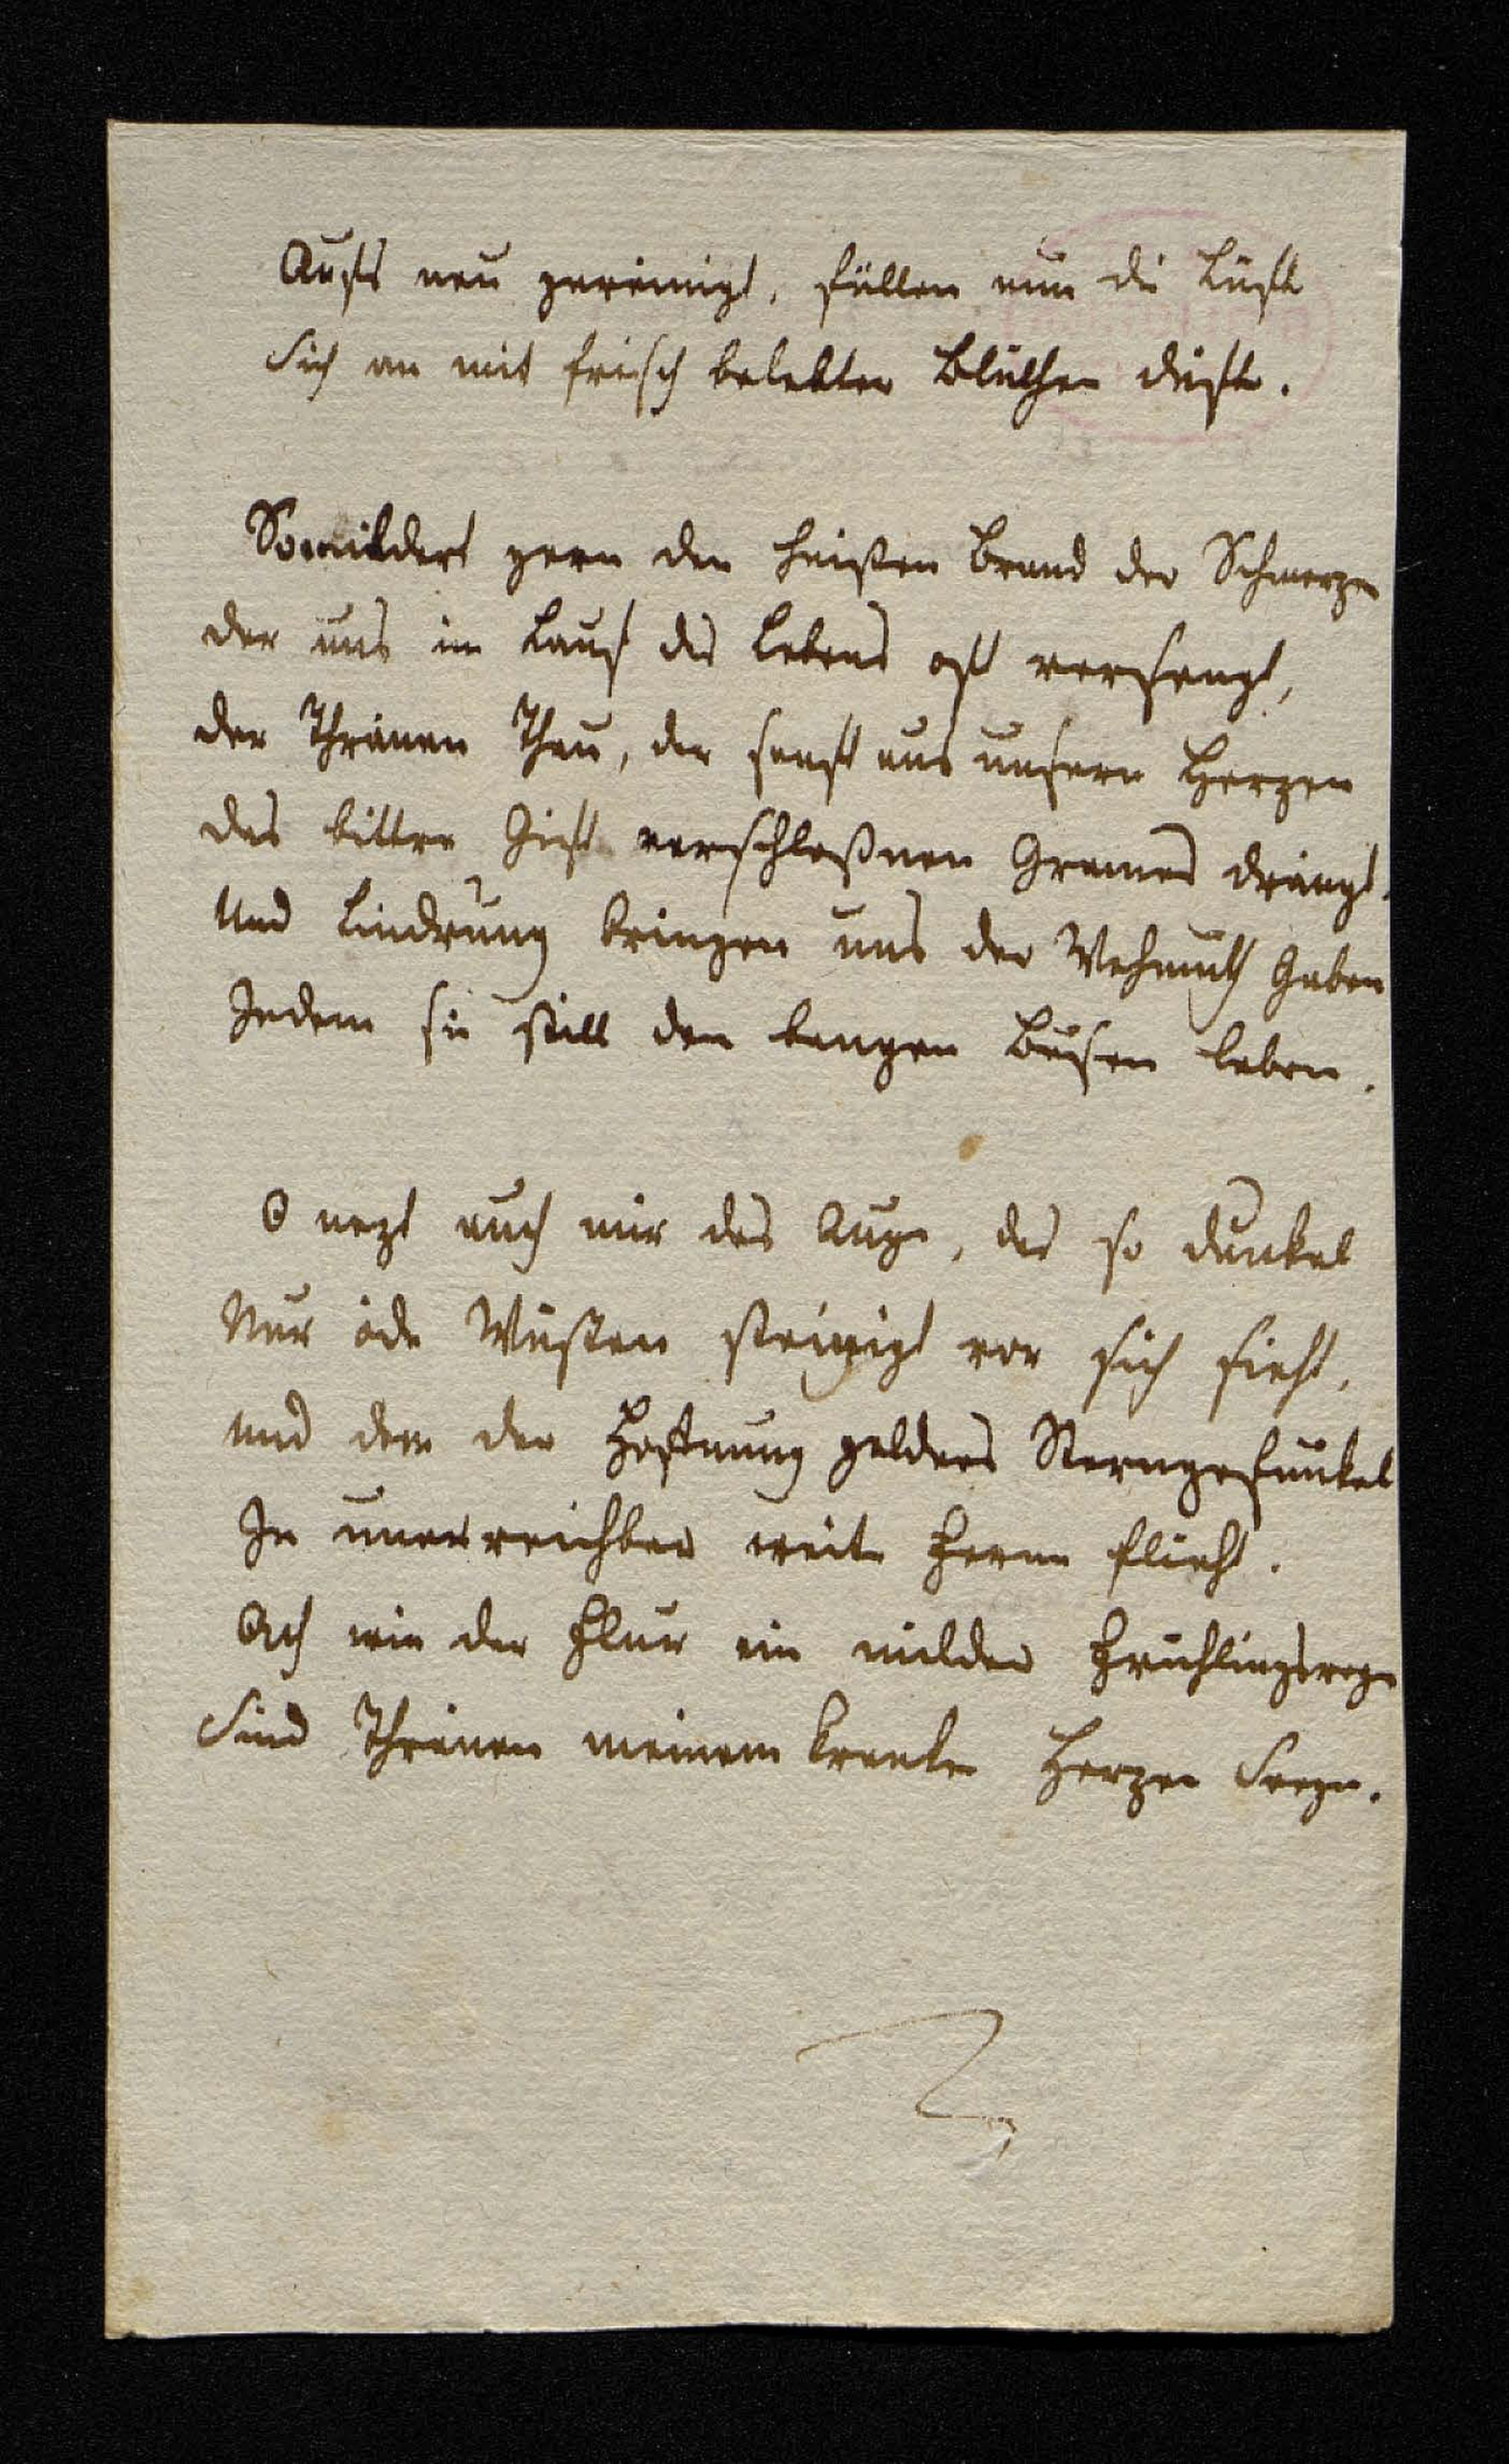 Aufs neu gereinigt, füllen nun die Lüfte
Sich an mit frisch belebter Blüthen düfte.
So mildert gern den heißen Brand der Schmerzen
der uns im Lauf des Lebens oft versengt,
der Thränen Thau, der sanft aus unserm Herzen
das bittre Gift verschloßnen Grames drängt.
Und Lindrung bringen uns der Wehmuth Gaben
Indem sie still den bangen Busen laben.
O nezt auch mir das Auge, das so dunkel
Nur öde Wüsten steinigt vor sich sieht,
und dem der Hofnung goldnes Sterngefunkel
In unerreichbar weite Ferne flieht.
Ach wie der Flur ein milder Frühlingsregen
Sind Thränen meinem kranken Herzen Seegen.